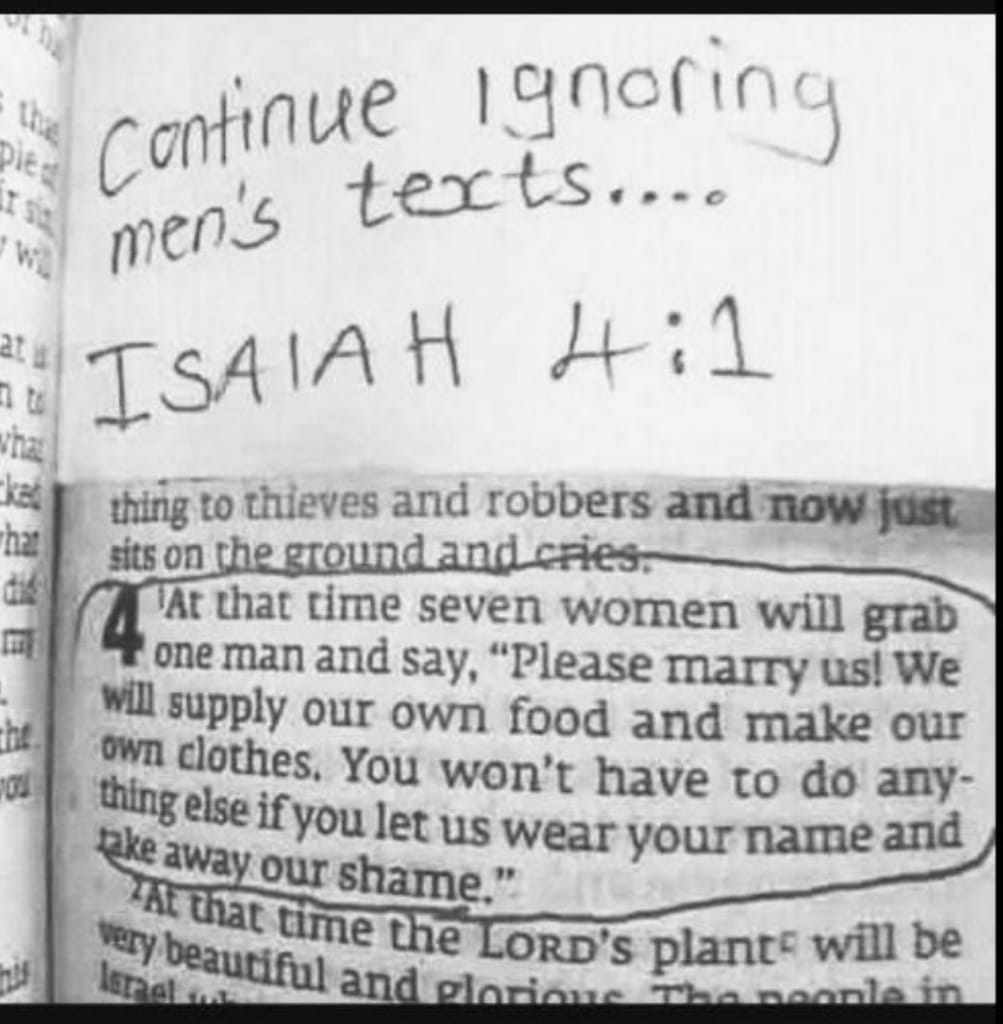 Continue ignoring
men's texts....
ISAIAH 4:1
thing to thieves and robbers and now just
sits on the ground and cries.
4 1At that time seven women will grab
one man and say, “Please marry us! We
will supply our own food and make our
own clothes. You won't have to do any-
thing else if you let us wear your name and
take away our shame.”
2At that time the LORD'S plant will be
very beautiful and glorious. The people in
Israel